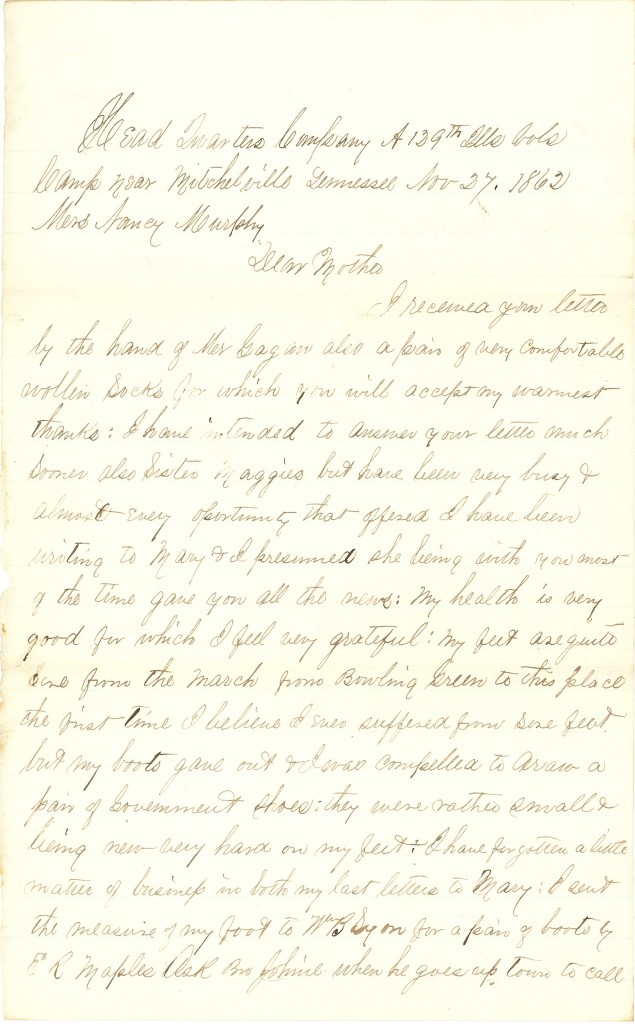 Head Quarters Company A 129th Ills Vols
Camp near Mitchelville Tennessee Nov 27. 1862
Mrs Nancy Murphy
Dear Mother
I received your letter
by the hand of Mr Gagan also a pair of very comfortable
wollin socks for which you will accept my warmest
thanks: I have intended to answer your letter much
sooner also Sister Maggies but have been very busy &
almost every oportunity that offered I have been
writing to Mary & I presumed she being with you most
of the time gave you all the news: My health is very
good for which I feel very grateful: my feet are quite
sore from the march from Bowling Green to this place
the first time I believe I ever suffered from sore feet.
but my boots gave out & I was compelled to draw a
pair of Government shoes: they were rather small &
being new very hard on my feet: I have forgotten a little
matter of business in both my last letters to Mary: I sent
the measure of my foot to Wm B Lyon for a pair of boots by
E R Maples Ask Bro Johnie when he goes up town to call